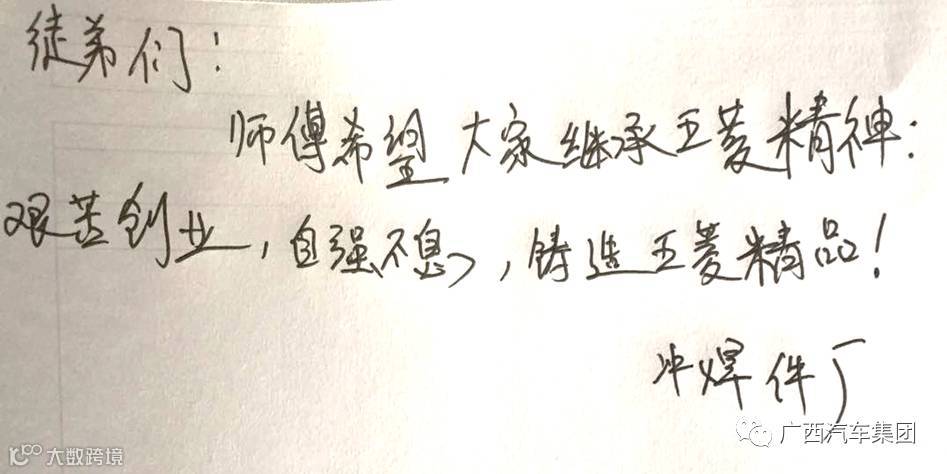 徒弟们：
师傅希望大家继承五菱精神：
艰苦创业，自强不息，铸造五菱精品！
冲焊件厂
广西汽车集团
大数跨境